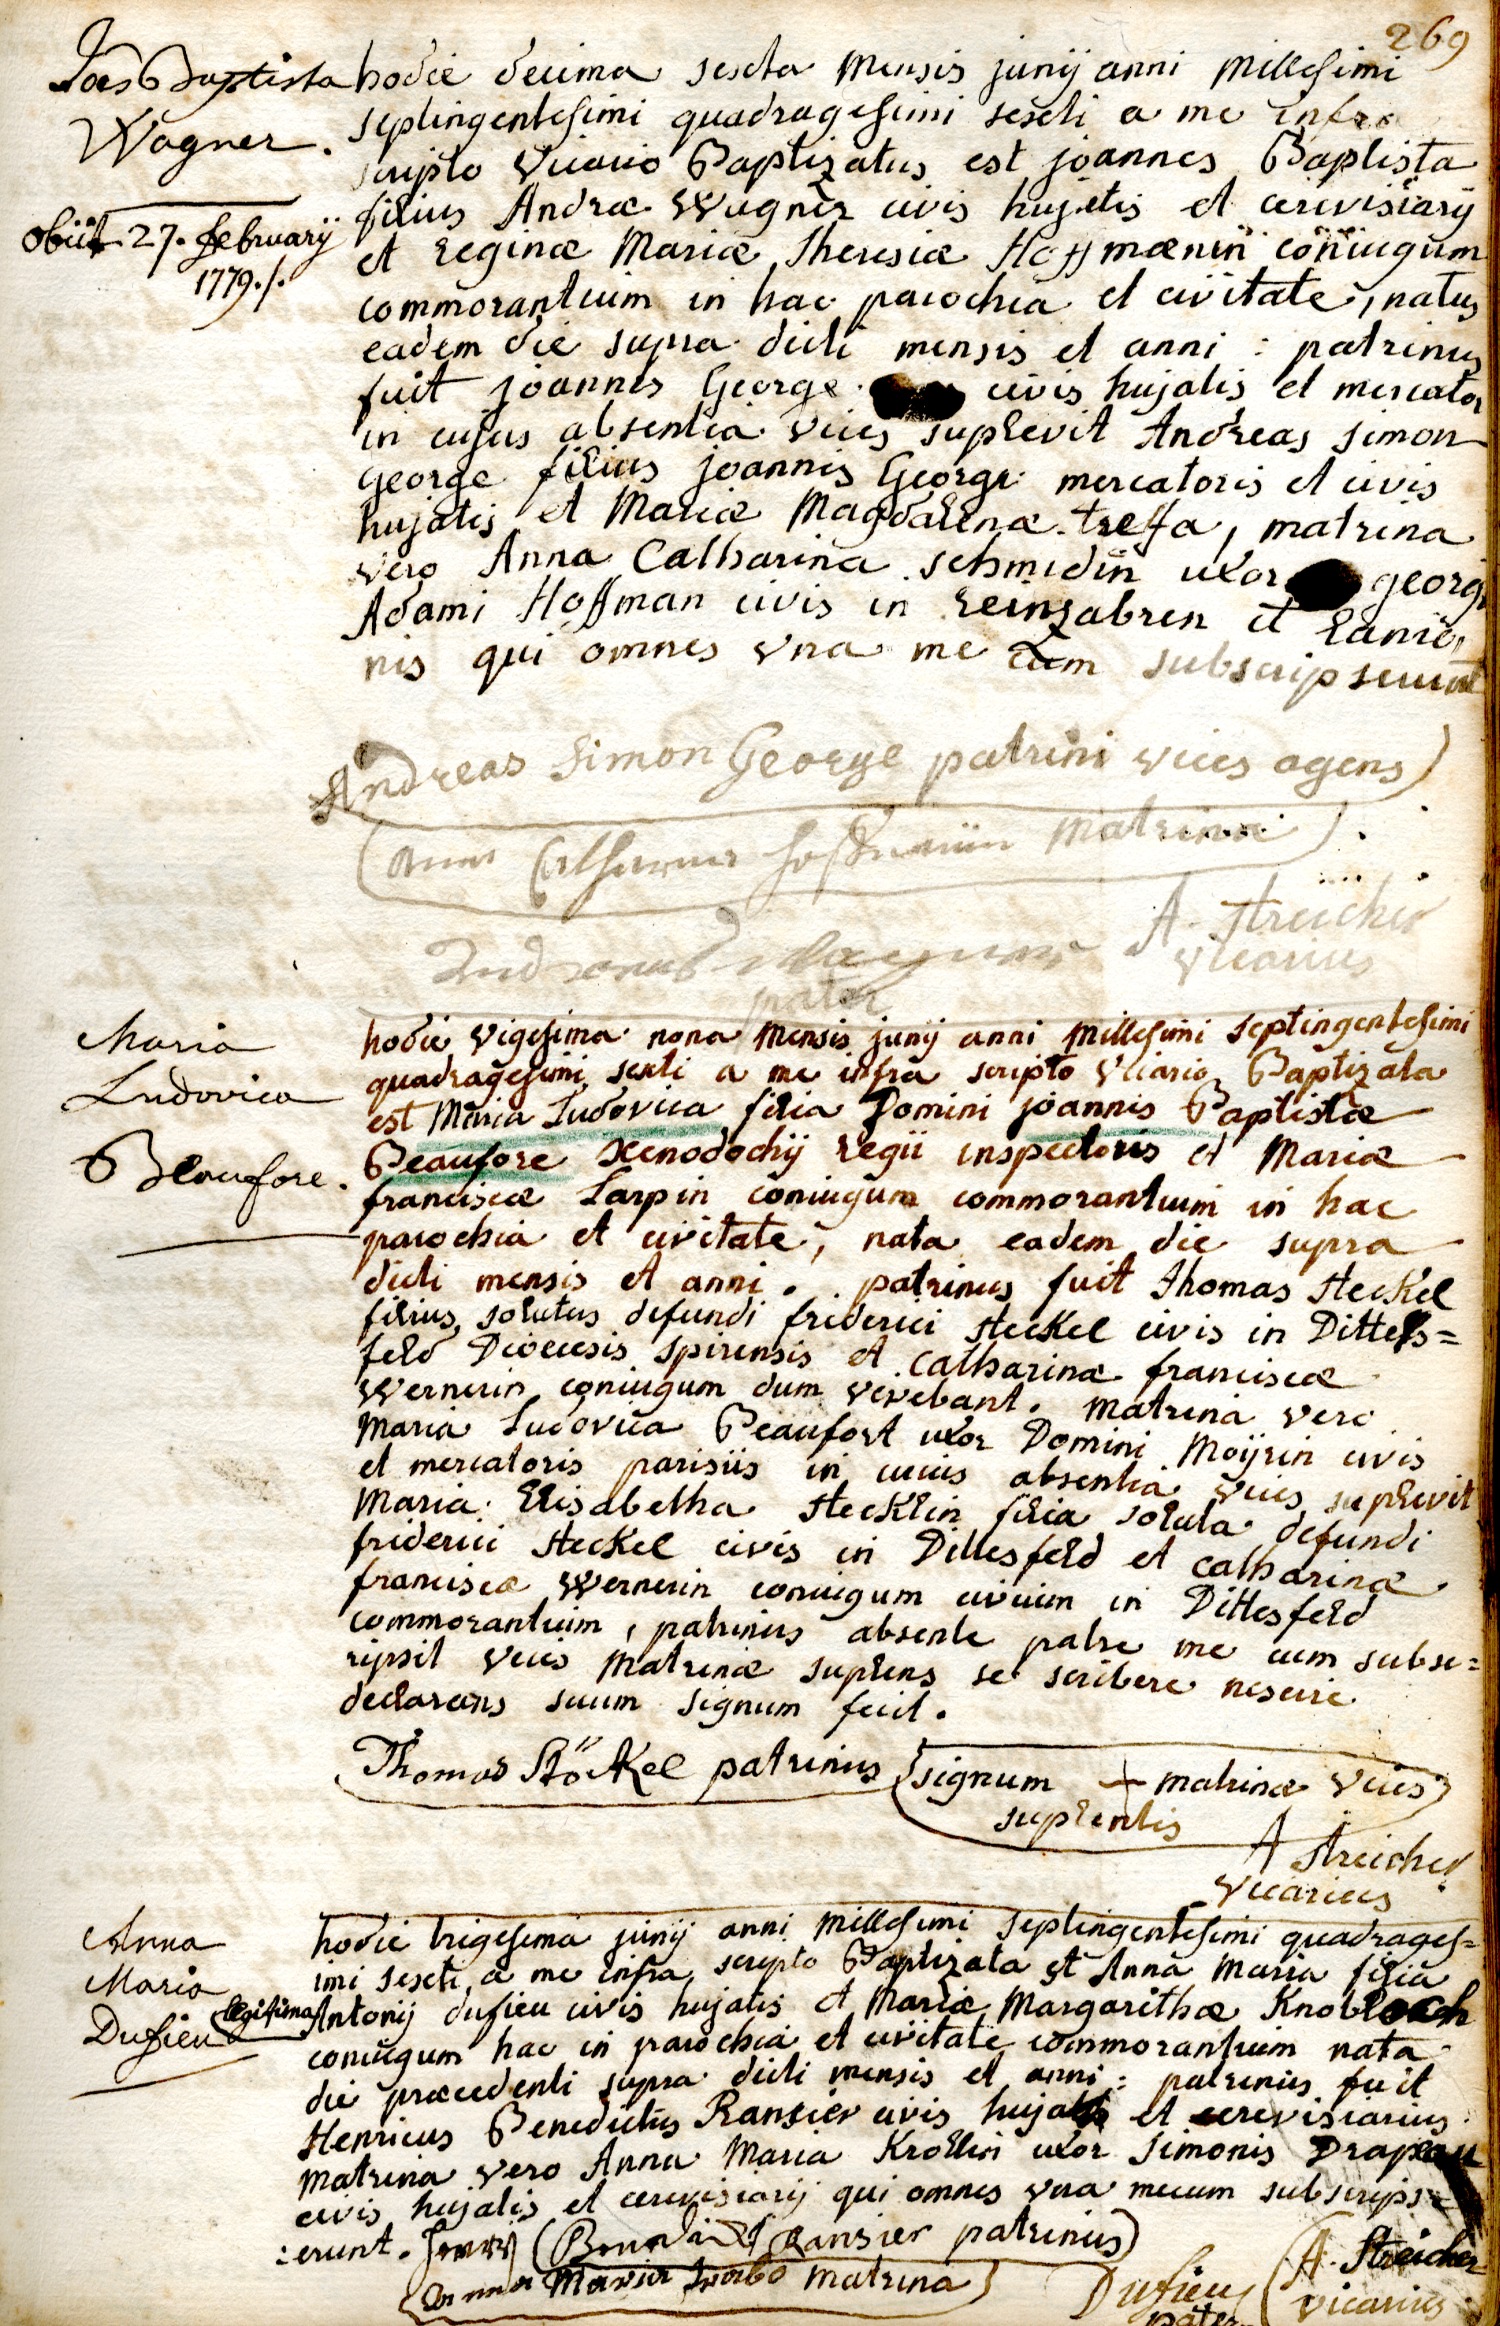 269
Joes Baptista
Wagner.
obiit 27. february
1779./.
hodie decima sexta mensis junij anni millesimi
septingentesimi quadragesimi sexti a me infra
scripto vicario Baptizatus est joannes Baptista
filius Andreæ Wagner civis hujatis et cerevisiarij
et reginæ Mariæ Theresiæ Hoffmænin coniugum
commorantium in hac parochia et civitate, natus
eadem die supra dicti mensis et anni : patrinus
fuit joannes George civis hujatis et mercator
in cujus absentia vices suplevit Andreas simon
george filius joannis George mercatoris et civis
hujatis et Mariæ Magdalenæ treffa, matrina
vero Anna Catharina schmidin uxor georgii
Adami Hoffman civis in Reinzabren et lanio,
nis qui omnes una me cum subscripserunt
Andreas Simon George patrini vices agens
Anna Catharina hoffmanin matrina
A. Streicher
vicarius
Andreas Wagner
pater
Maria
Ludovica
Beaufore.
hodie vigesima nona mensis junij anni millesimi septingentesimi
quadragesimi sexti a me infra scripto vicario Baptizata
est Maria Ludovica filia Domini joannis Baptistæ
Beaufore xenodochij regii inspectoris et Mariæ
franciscæ Larpin coniugum commorantium in hac
parochia et civitate, nata eadem die supra
dicti mensis et anni . patrinus fuit Thomas steckel
filius solutus defuncti friderici steckel civis in Dittes=
feld Dioecesis spirensis et catharinæ franciscæ
Wernerin coniugum dum vivebant. matrina vero
Maria Ludovica Beaufort uxor Domini Moijrin civis
et mercatoris parisiis in cuius absentia vices suplevit
Maria Elisabetha stecklin filia soluta defuncti
friderici steckel civis in Dittesfeld et catharinæ
franciscæ Wernerin coniugum civium in Dittesfeld
commorantium, patrinus absente patre me cum subsc=
ripsit vices matrinæ suplens se scribere nescire
declarans suum signum fecit.
Thomas Stöckel patrinus signum + matrinæ vices
suplentis
A Streicher
vicarius
Anna
Maria
Dufieu
hodie trigesima junij anni millesimi septingentesimi quadrages=
imi sexti a me infra scripto Baptizata est Anna Maria filia
legitima Antonij dufieu civis hujatis et Mariæ Margarithæ Knobloch
coniugum hac in parochia et civitate commorantium nata
die præcedenti supra dicti mensis et anni : patrinus fuit
Henricus Benedictus Ransier civis hujatis et cerevisiarius
matrina vero Anna Maria Krollin uxor simonis Drapeau
civis hujatis et cerevisiarij qui omnes una mecum subscrips=
=erunt. Benedict Ransier patrinus
Anna Maria matrina
Dufieu
pater
A. Streicher
vicarius